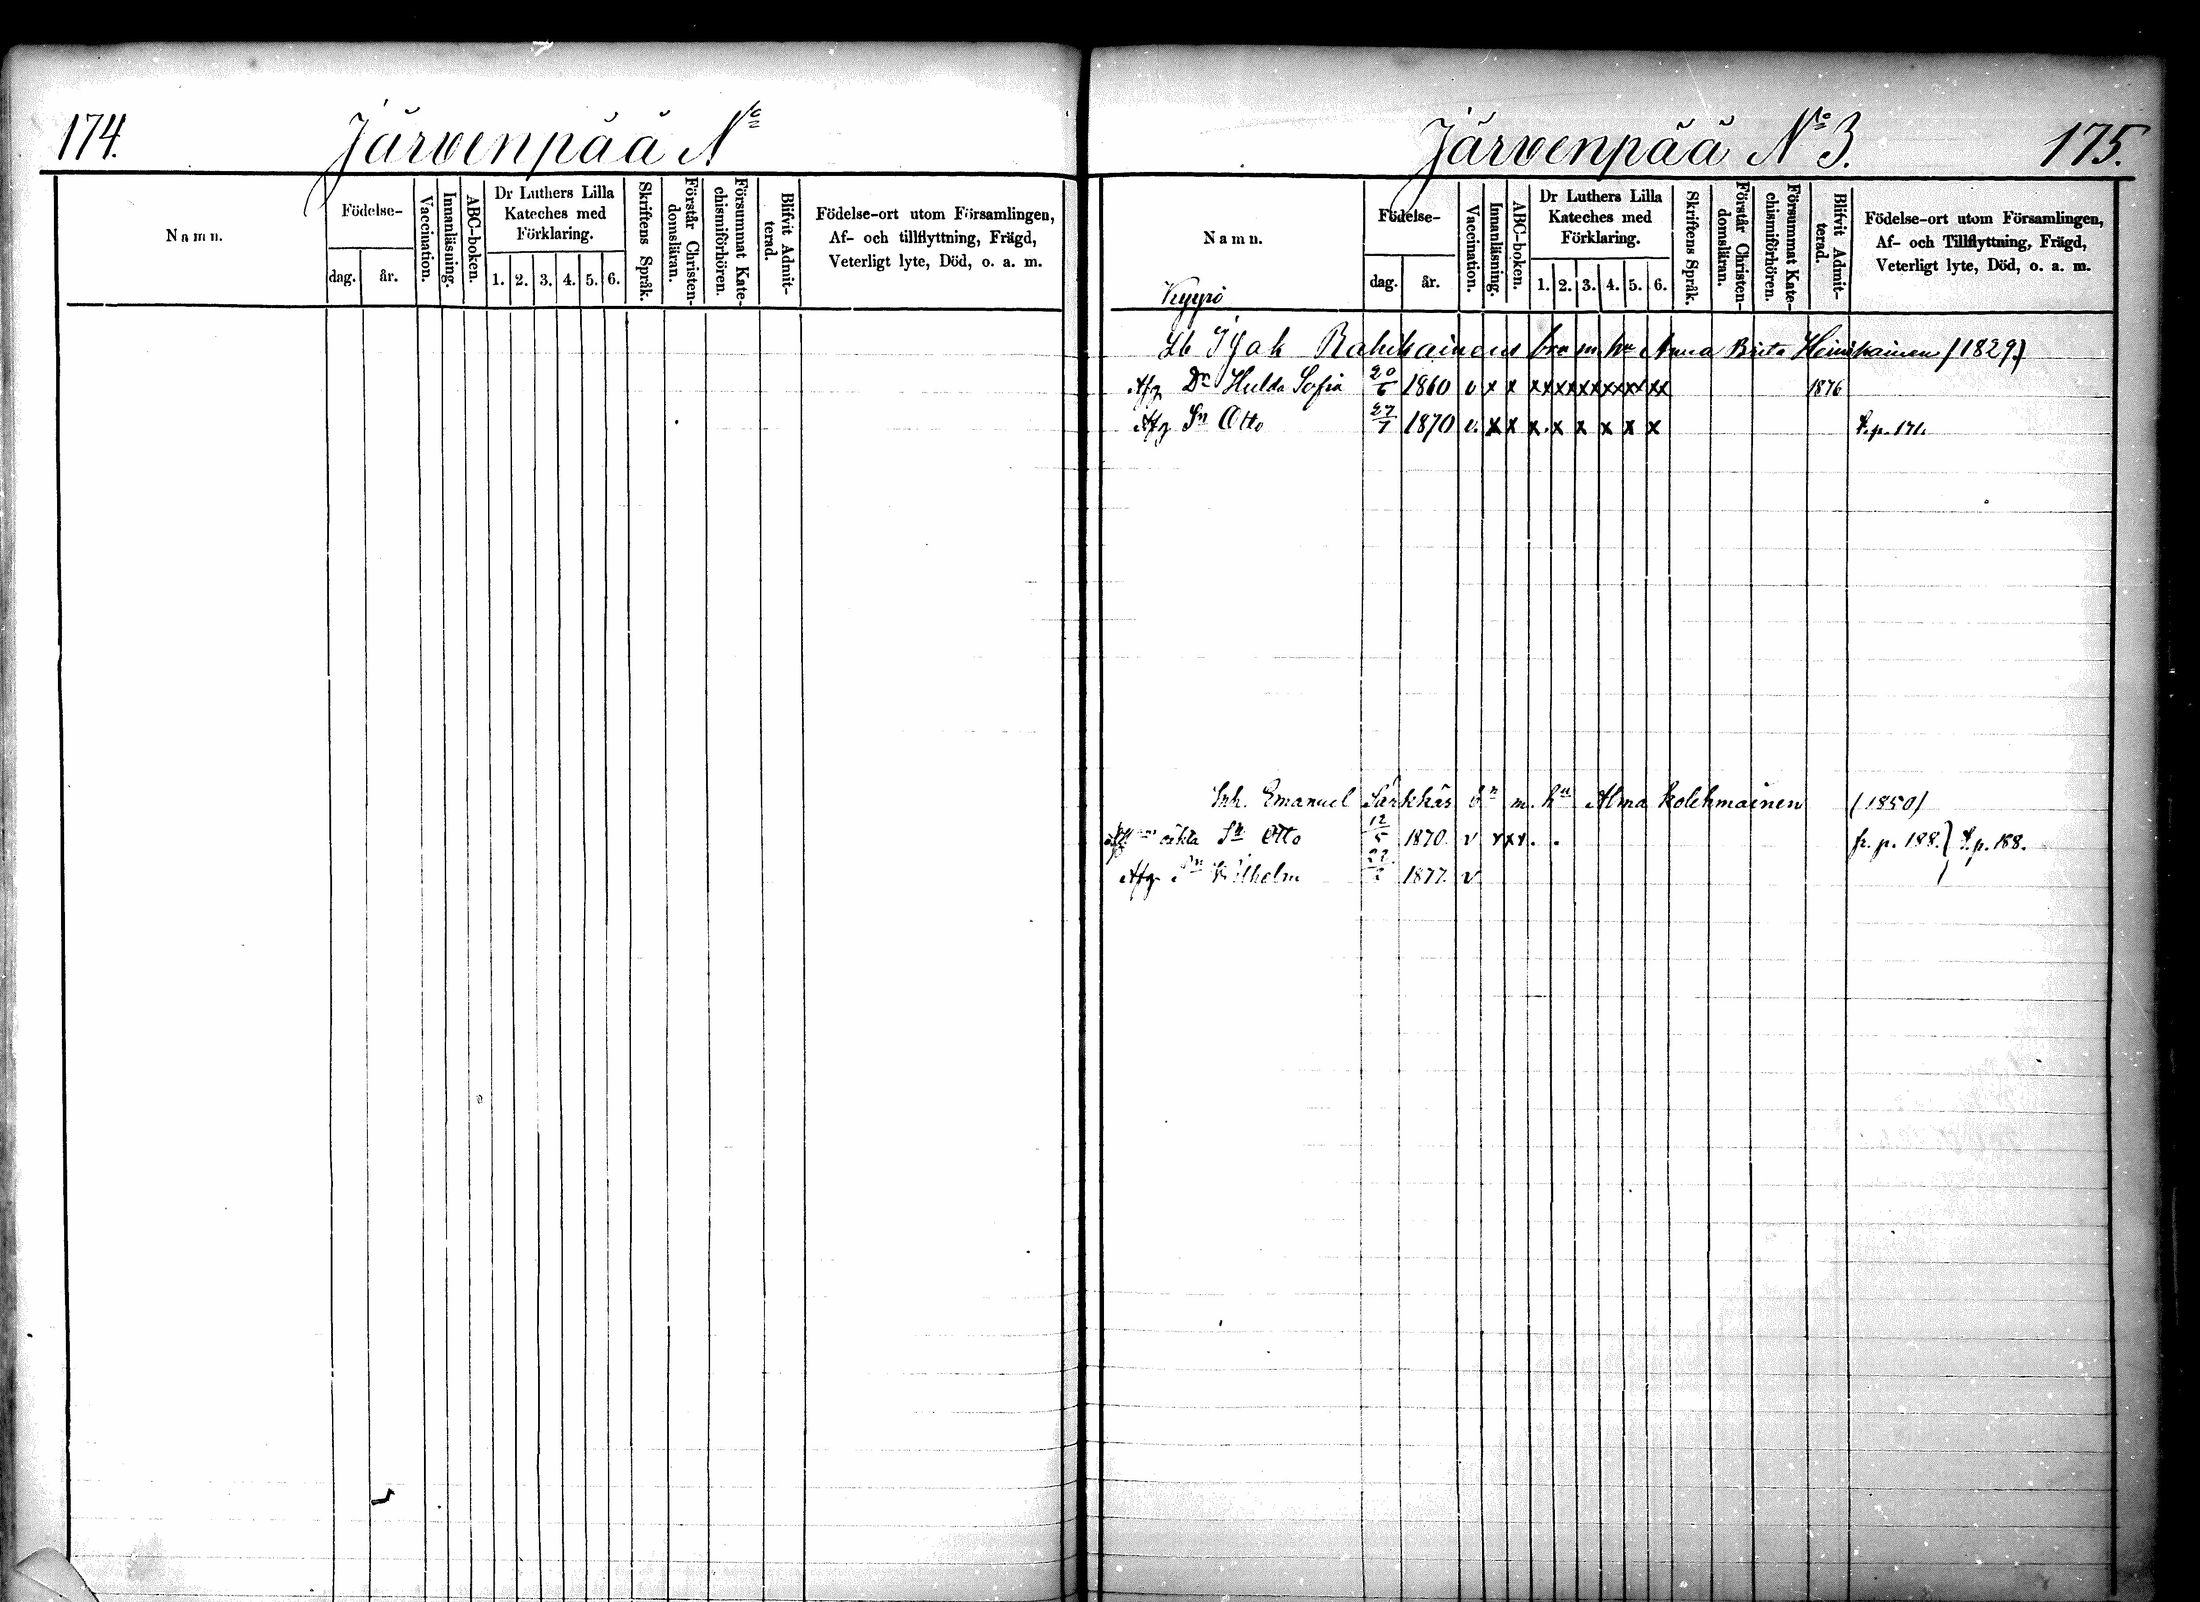 174. Järvenpää N°
Namn.
Födelse-
dag. år.
Vaccination.
Innanläsning.
ABC-boken.
Dr Luthers Lilla
Kateches med
Förklaring.
1. 2. 3. 4. 5. 6.
Skriftens Språk.
Förstår Christen-
domsläran.
Försummat Kate-
chismiförhören.
Blifvit Admit-
terad.
Födelse-ort utom Församlingen,
Af- och tillflyttning, Frägd,
Veterligt lyte, Död, o. a. m.
Järvenpää N° 3. 175.
Namn.
Födelse-
dag. år.
Vaccination.
Innanläsning.
ABC-boken.
Dr Luthers Lilla
Kateches med
Förklaring.
1. 2. 3. 4. 5. 6.
Skriftens Språk.
Förstår Christen-
domsläran.
Försummat Kate-
chismiförhören.
Blifvit Admit-
terad.
Födelse-ort utom Församlingen,
Af- och Tillflyttning, Frägd,
Veterligt lyte, Död, o. a. m.
Lb m. Anna Brita Heiskainen (1829)
Afg Dr Hulda Sofia 20/6 1860 v x x xx xx xx xx xx xx 1876
Afg Sn Otto 27/7 1870 v. x x x. x x x x x
Inh. Emanuel Särkkäs m. hu Alma Kolehmainen (1850)
Sn Otto 12/5 1870. v x x x . . fr. p. 188.) T. p. 188.
Afg Sn Wilhelm 1877. v